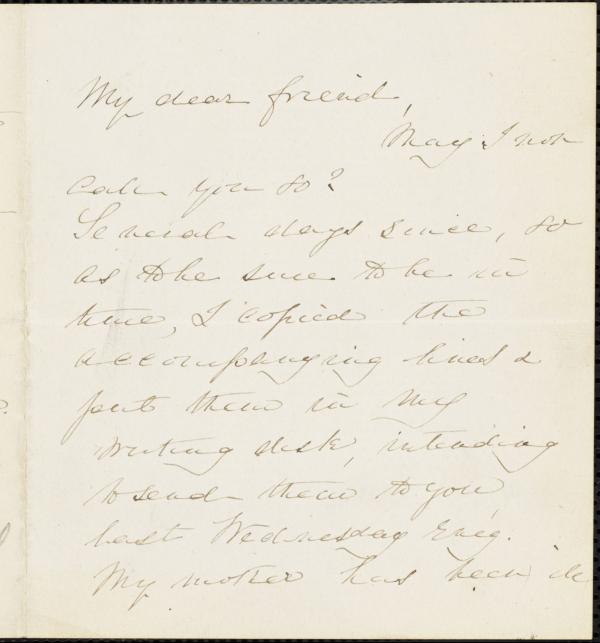 My dear friend,
May I not
call you so?
Several days since, so
as to be sure to be in
time, I copied the
accompanying lines &
put them in my
writing desk, intending
to send them to you
last Wednesday Eve'g.
My mother has been ill